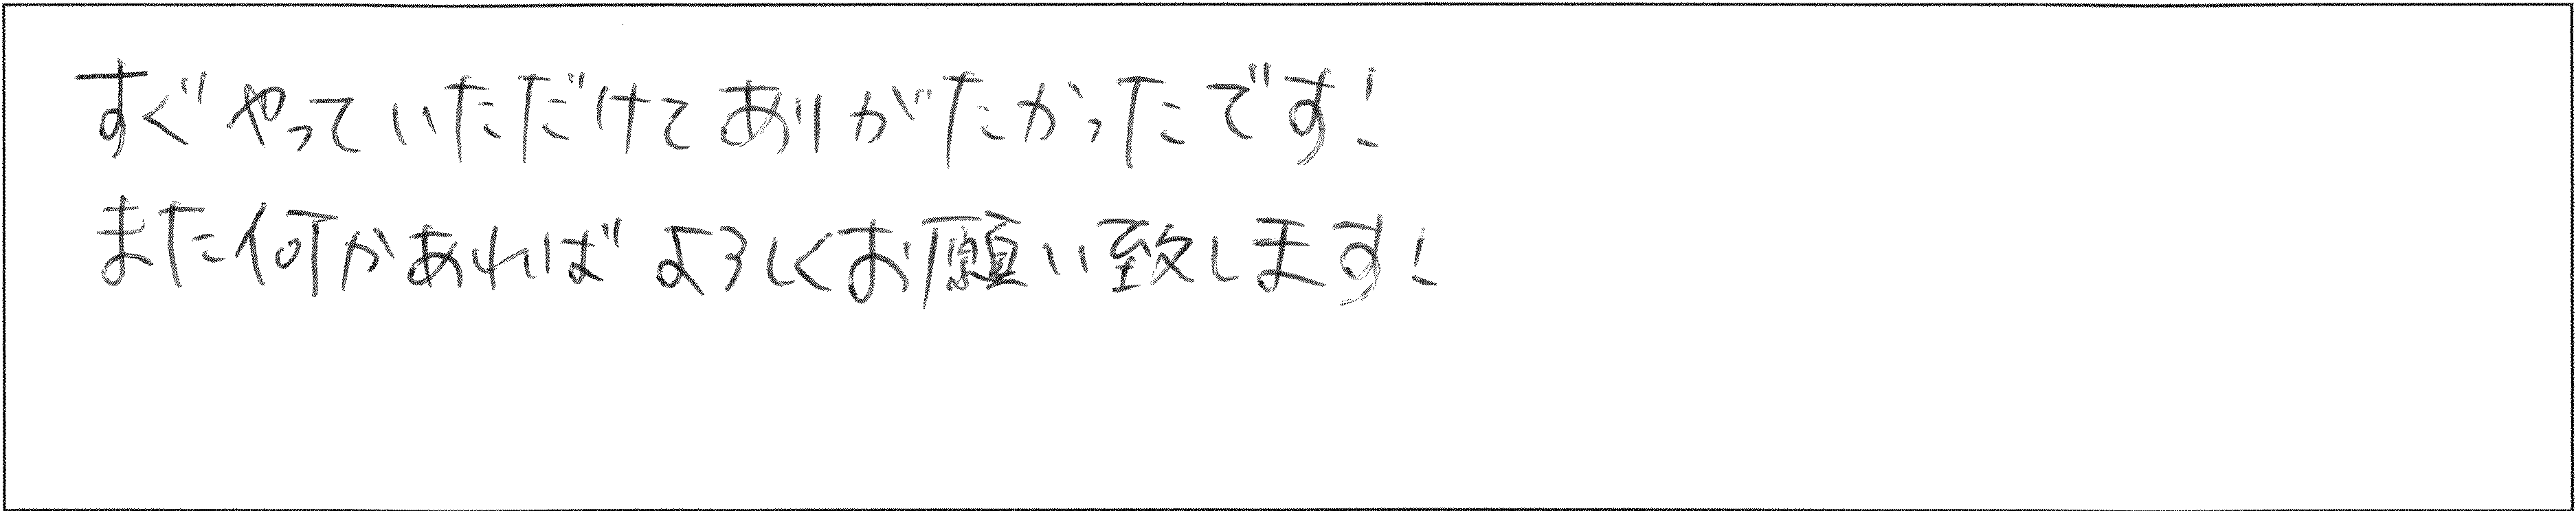 すぐやっていただけてありがたかったです!
また何かあればよろしくお願い致します!